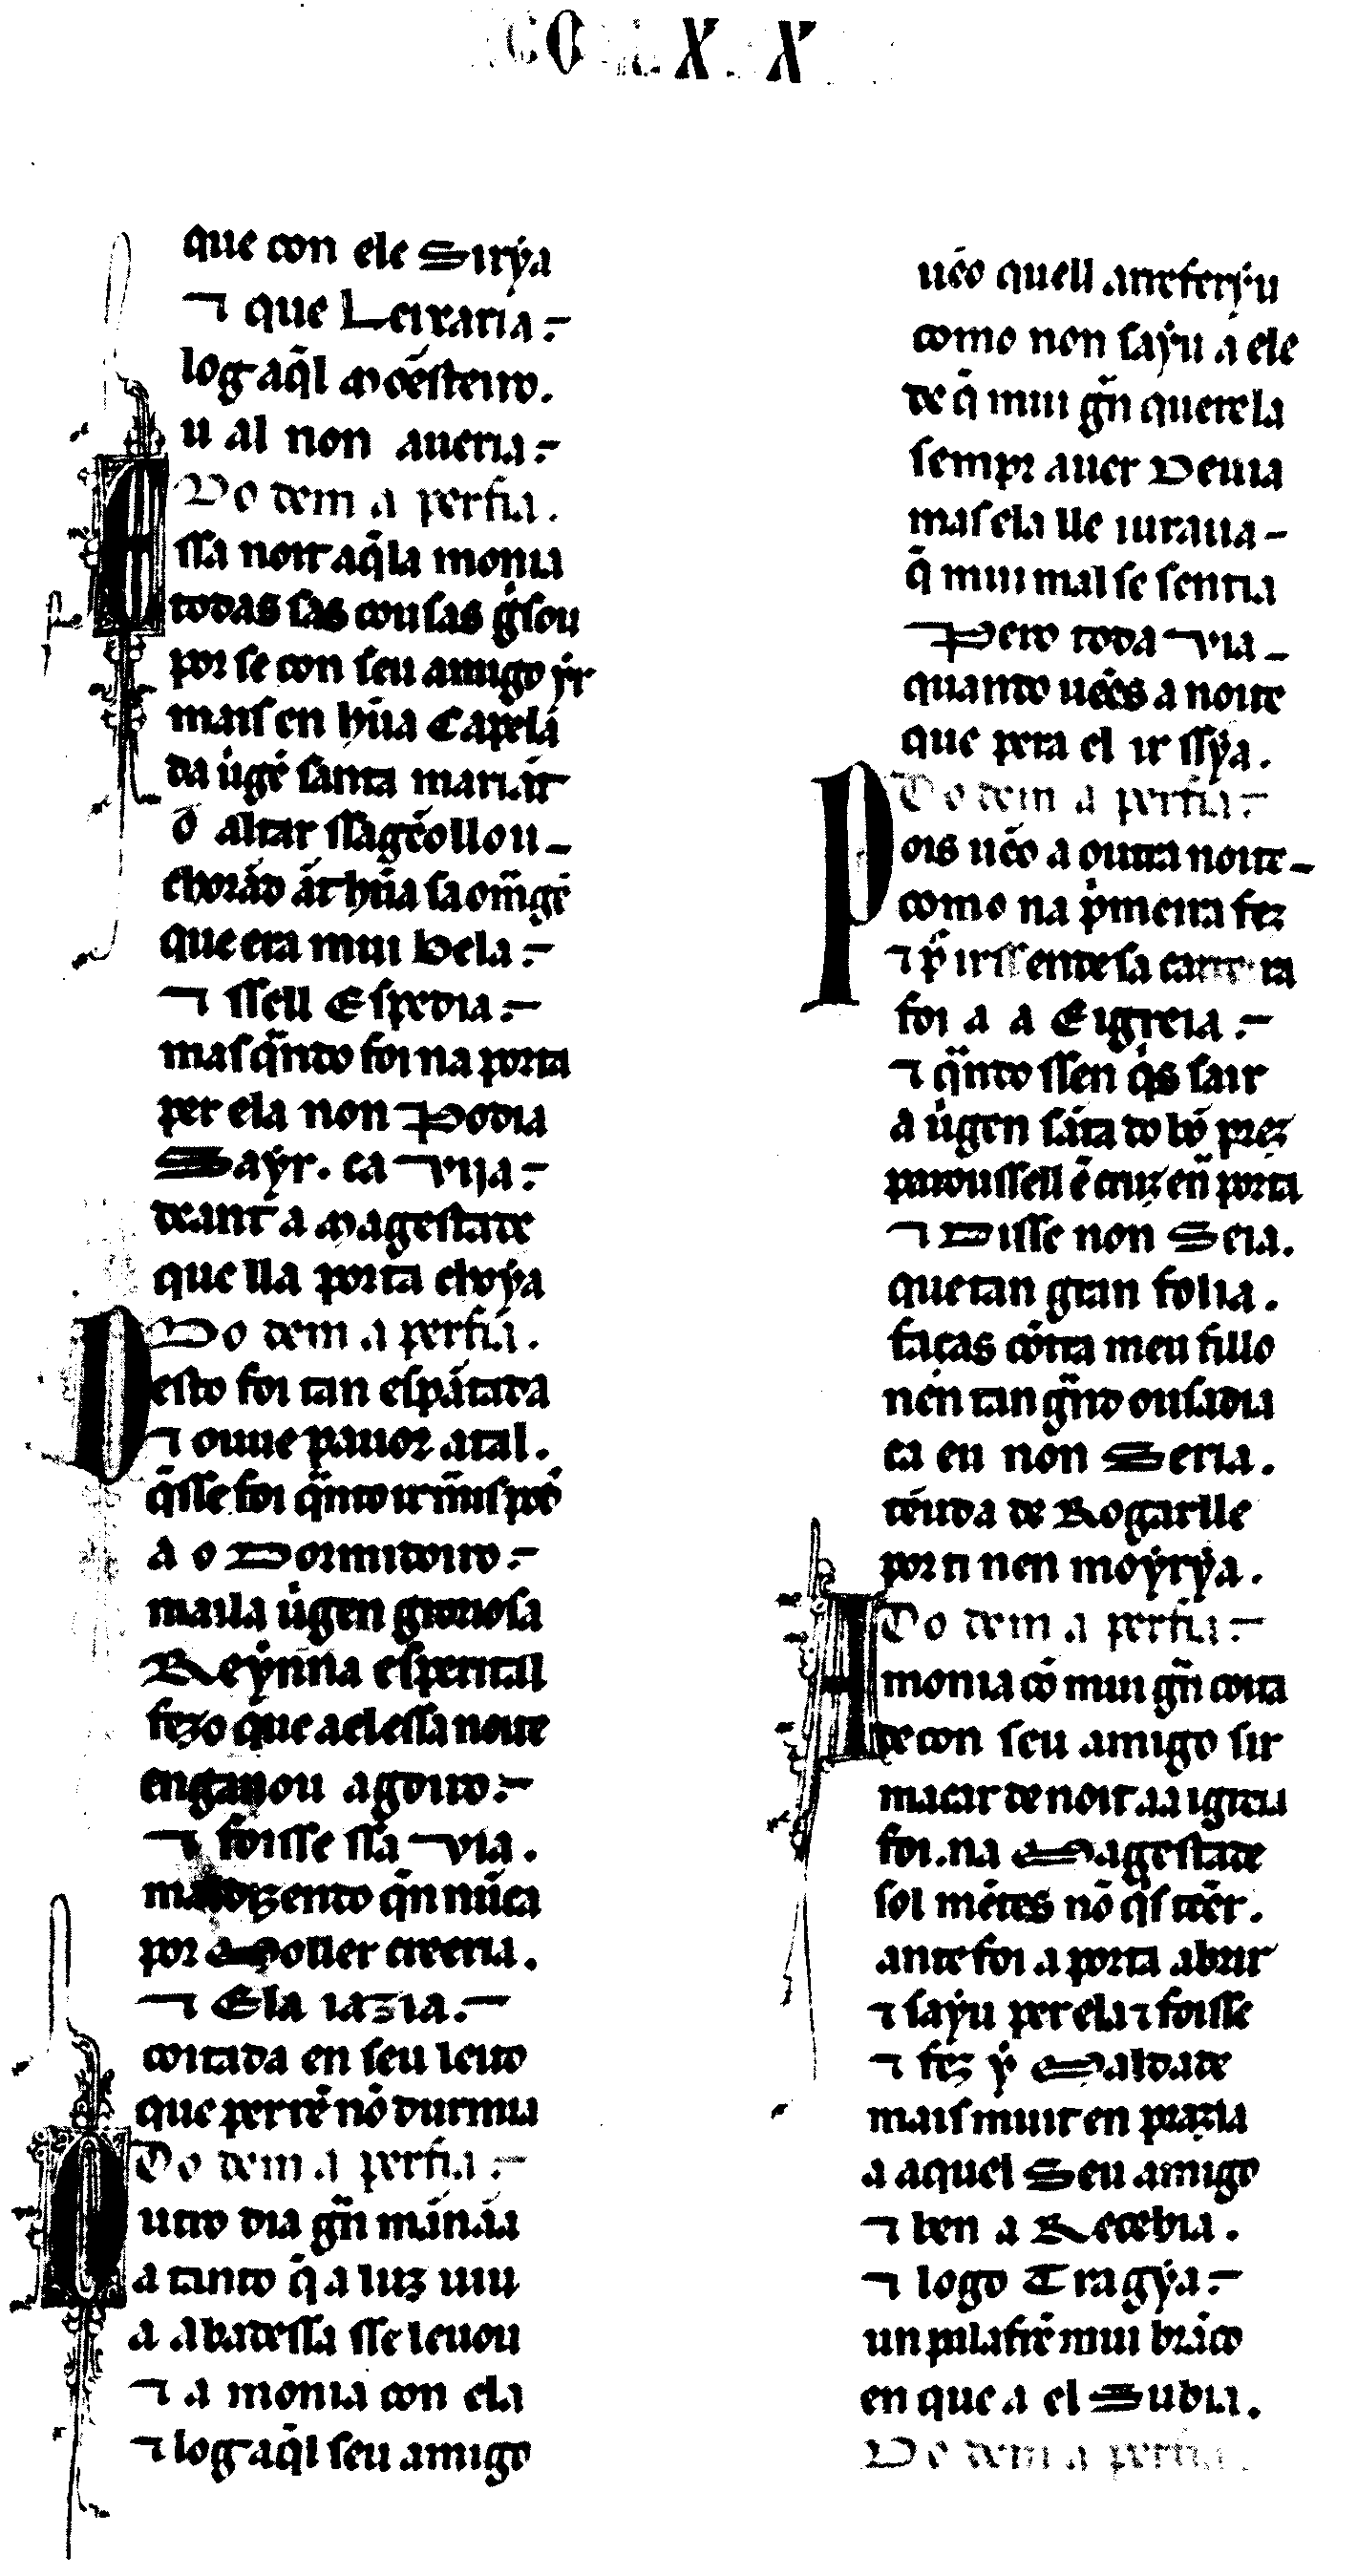 que con ele Sirÿa
⁊ que Leixaria.
log aq̄l mōesteiro.
u al non aueria.
Do dem a perfia.
Essa noit aq̄la monia
todas sas cousas g̍sou
por se con seu amigo ẏr
mais en hũa Capela
da u̍gē santa maria ar
o altar ssagēollou
chorādo āt hũa sa om̄agē
que era mui bela.
⁊ ssell Espedia.
mas q̄ndo foi na porta
per ela non Podia
Sayr. ca vija.
deant a Magestade
que lla porta choÿa
Do dem a perfia.
Desto foi tan espātada
⁊ ouue pauor atal.
q̄sse foi q̄nto ir mais pod̄
a o Dormidoiro.
mai la u̍gen groriosa
Reynna esperital
fezo que a el essa noite
enganou agoiro.
⁊ foisse ssa via.
maldizendo q̄n nūca
por Moller creeria.
⁊ Ela iazia.
coitada en seu leito
que per rē nō durmia
Do dem a perfia.
Outro dia g̃n mānāa
a tanto q̄ a luz uiu
a Abadessa sse leuou
⁊ a monia con ela
⁊ log aq̄l seu amigo
uēo quell ante ferÿu
como non sayu a ele
de q̄ mui g̃n querela
sempr auer Deuia
mas ela lle iuraua
q̄ mui mal se sentia
Pero toda via
quando uēes a noite
que pera el ir ssÿa.
Do dem a perfia.
Pois uēo a outra noite
como na p̍meira fez
⁊ p̄ irss ende sa carreira
foi a a Eigreia.
⁊ q̄ndo ssen q̍s sair
a u̍gen sāta do bō prez
paroussell ē cruz en̄ porta
⁊ Disse non Seia.
que tan gran folia.
faças cōtra meu fillo
nen tan g̃nd ousadia
ca eu non Seria.
tēuda de Rogarlle
por ti nen moÿrÿa.
Do dem a perfia
A monia cō mui g̃n coita
de con seu amigo sir
macar de noit aa igreia
foi. na Magestade
sol mētes nō q̍s tēer.
ante foi a porta abrir
⁊ sayu per ela ⁊ foisse
⁊ fez ẏ Maldade
mais muit en prazia
a aquel Seu amigo
⁊ ben a Recebia.
⁊ logo Tragÿa.
un palafrē mui brāco
en que a el Subia.
Do dem a perfia.